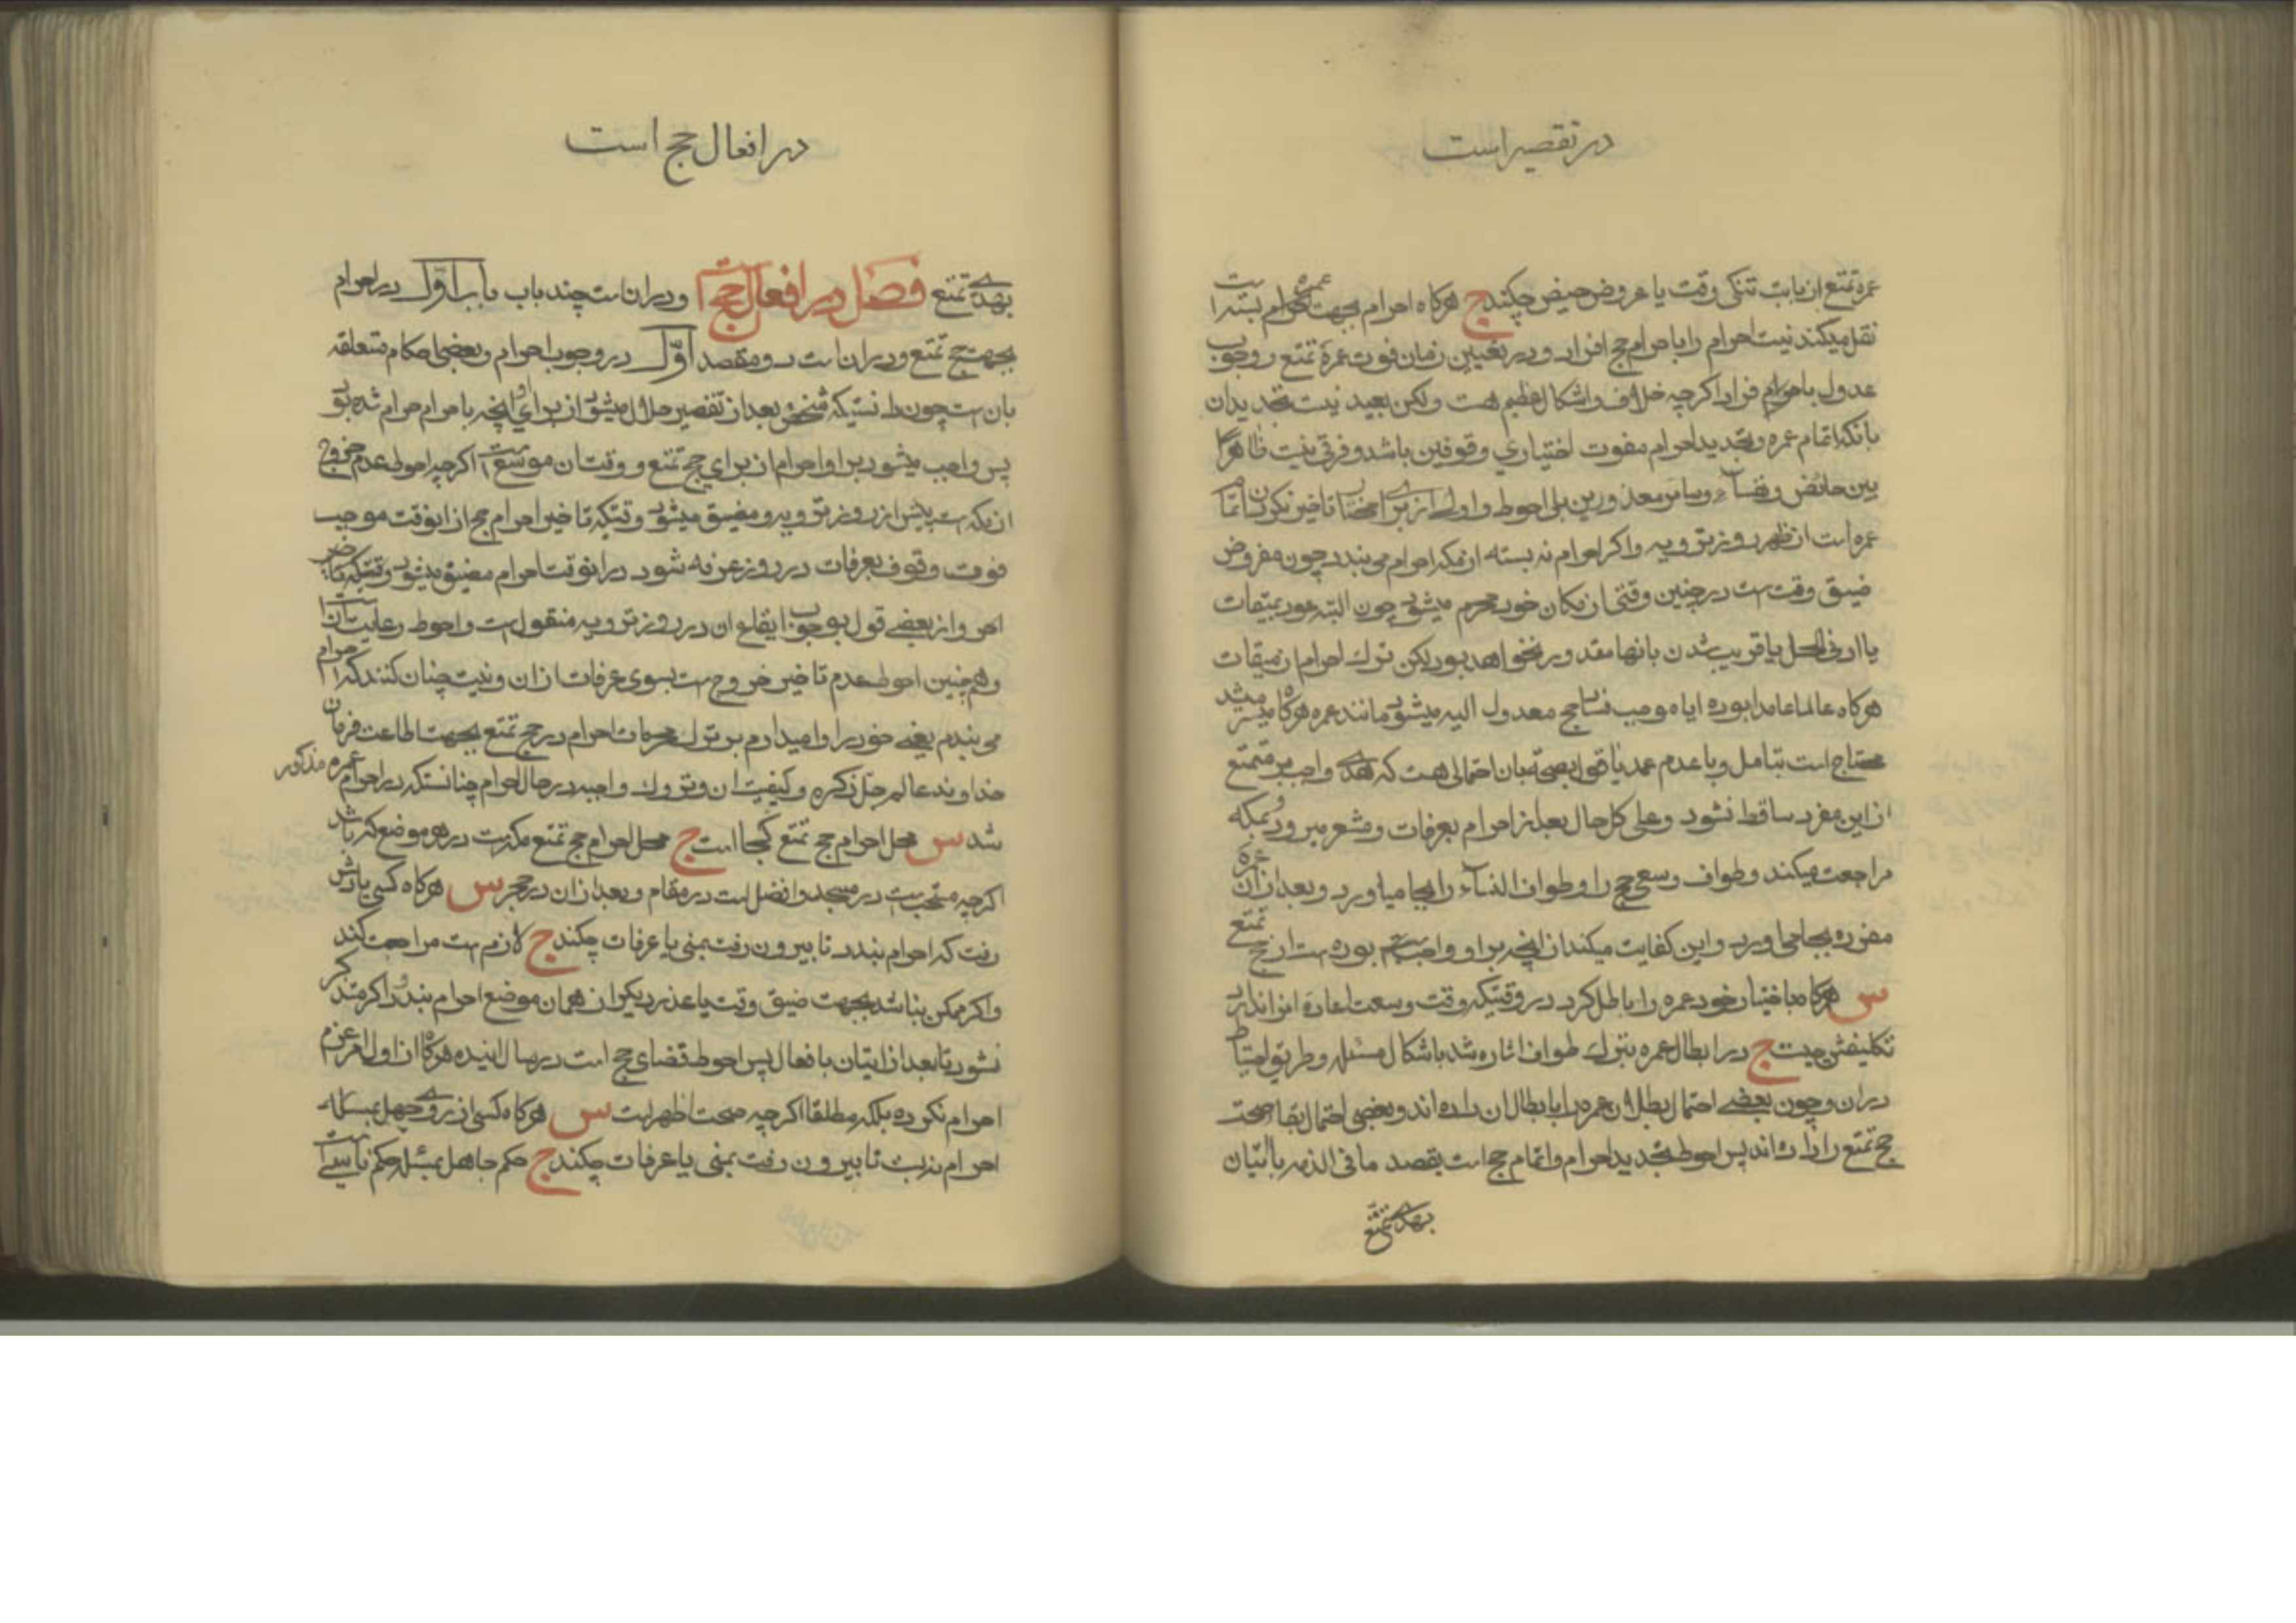 در تقصیر است
عمره تمتع از بابت تنکی وقت یا عروض حیض چکند ج هرکاه احرام بجهت عمره احرام بسته است
نقل میکند نیت احرام را باحرام حج افراد و در تعیین زمان فوت عمرۀ تمتع و وجوب
عدول باحرام افراد اکرچه خلاف و اشکال عظیم هست ولکن بعید نیست تحدید ان
بانکه اتمام عمره و تجدید احرام مفوت اختیاری وقوفین باشد و فرقی نیست ظاهرا
بین حائض و نفساء و سائر معذورین بلی احوط و اولی از برای تاخیر نکردن اتمام
عمره است از ظهر روز ترویه و اکر احرام نه بسته از مکه احرام می بندد چون مفروض
ضیق وقت است در چنین وقتی از مکان خود محرم میشود چون البته عود بمیقات
یا ادنی الحل یا قریب شدن بانها مقدور نخواهد بود لیکن ترک احرام از میقات
هرکاه عالما عامدا بوده ایا موجب فساد حج معدول الیه میشود مانند عمره هرکاه میسر میشد
محتاج است بتامل و با عدم عمد یا قول بصحة بان احتمالی هست که هدی واجب بر متمتع
از این مفرد ساقط نشود و علی کل حال بعد از احرام بعرفات و مشعر میرود و بمکه
مراجعت میکند و طواف و سعی حج را و طواف النساء را بجا میاورد و بعد از ان عمرۀ
مفرده بجا می اورد و این کفایت میکند از انچه بر او واجب بوده است از حج تمتع
س هرکاه باختیار خود عمره را باطل کرد در وقتیکه وقت وسعت اعادۀ انرا ندارد
تکلیفش چیست ج در ابطال عمره بترک طواف اشاره شد باشکال مسئله و طریق احتیاط
در ان و چون بعضی احتمال بطلان عمره را بابطال ان داده اند و بعضی احتمال بقاء صحت
حج تمتع را داده اند پس احوط تجدید احرام و اتمام حج است بقصد ما فی الذمه با اتیان
بهدی تمتع
در افعال حج است
بهدی تمتع فصل در افعال حج است و در ان است چند باب باب اول در احرام
بجهت حج تمتع و در ان است دو مقصد اول در وجوب احرام و بعضی احکام متعلقه
بان است چون دانستیکه شخص بعد از تقصیر حلال میشود از برای او انچه باحرام حرام شده بود
پس واجب میشود بر او احرام از برای حج تمتع و وقت ان موسع است اکرچه احوط عدم خروج
از مکه است پیش از روز ترویه و مضیق میشود وقتیکه تاخیر احرام حج از انوقت موجب
فوت وقوف بعرفات در روز عرفه شود در انوقت احرام مضیق میشود وقتیکه
و از بعضی قول بوجوب ایقاع ان در روز ترویه منقول است و احوط رعایت ان است
و همچنین احوط عدم تاخیر خروج است بسوی عرفات از ان و نیت چنان کنند که احرام
می بندم یعنی خود را وا میدارم بر ترک محرمات احرام در حج تمتع بجهت اطاعت فرمان
خداوند عالم جل ذکره و کیفیت ان و تروک واجبه در حال احرام چنانستکه در احرام عمره مذکور
شد س محل احرام حج تمتع کجا است ج محل احرام حج تمتع مکه است در هر موضع که باشد
اکرچه مستحب است در مسجد و افضل است در مقام و بعد از ان در حجر س هرکاه کسی یادش
رفت که احرام بندد تا بیرون رفت بمنی یا عرفات چکند ج لازم است مراجعت کند
و اکر ممکن نباشد بجهت ضیق وقت یا عذر دیکر از همان موضع احرام بندد و اکر متذکر
نشود تا بعد از اتیان بافعال پس احوط قضای حج است در سال اینده هرکاه از اول امر عزم
احرام نکرده بلکه مطلقا اکرچه صحت اظهر است س هرکاه کسی از روی جهل بمسئله
احرام نه بست تا بیرون رفت بمنی یا عرفات چکند ج حکم جاهل بمسئله حکم ناسی است